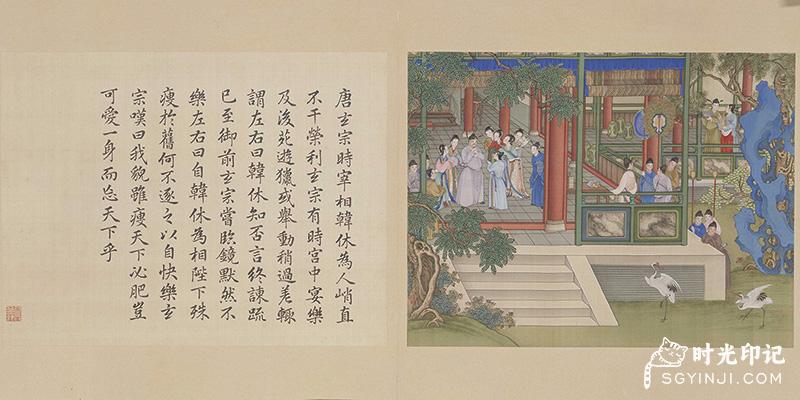 唐玄宗時宰相韓休為人峭直
不干榮利玄宗有時宮中宴樂
及後苑遊獵或舉動稍過差輒
謂左右曰韓休知否言終諫疏
已至御前玄宗嘗臨鏡默然不
樂左右曰自韓休為相陛下殊
瘦於舊何不逐之以自快樂玄
宗嘆曰我貌雖瘦天下必肥豈
可愛一身而忘天下乎
时光印记
SGYINJI.COM